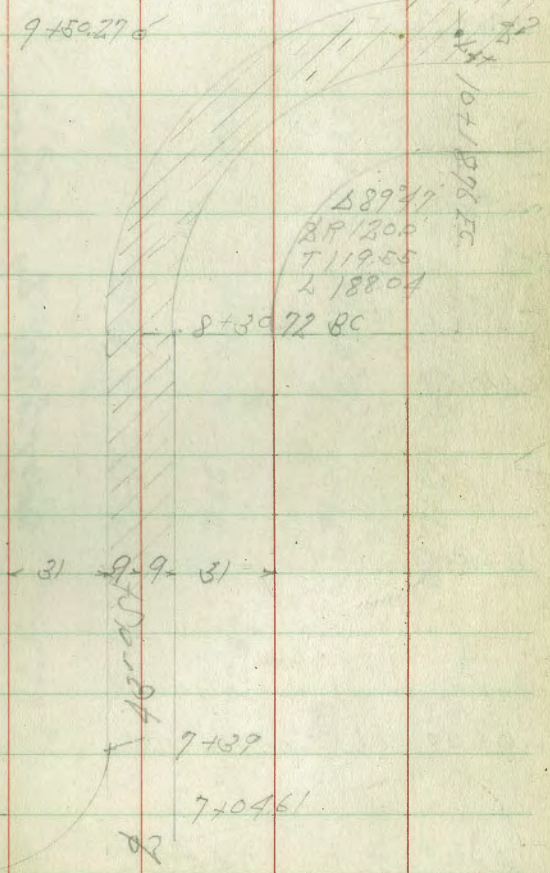 9+50.27
10+18.76 EC
Δ 89°47'
R 120.0
T 119.55
L 188.04
8+30.72 BC
31 9 9 31
43rd St
7+39
7+04.61